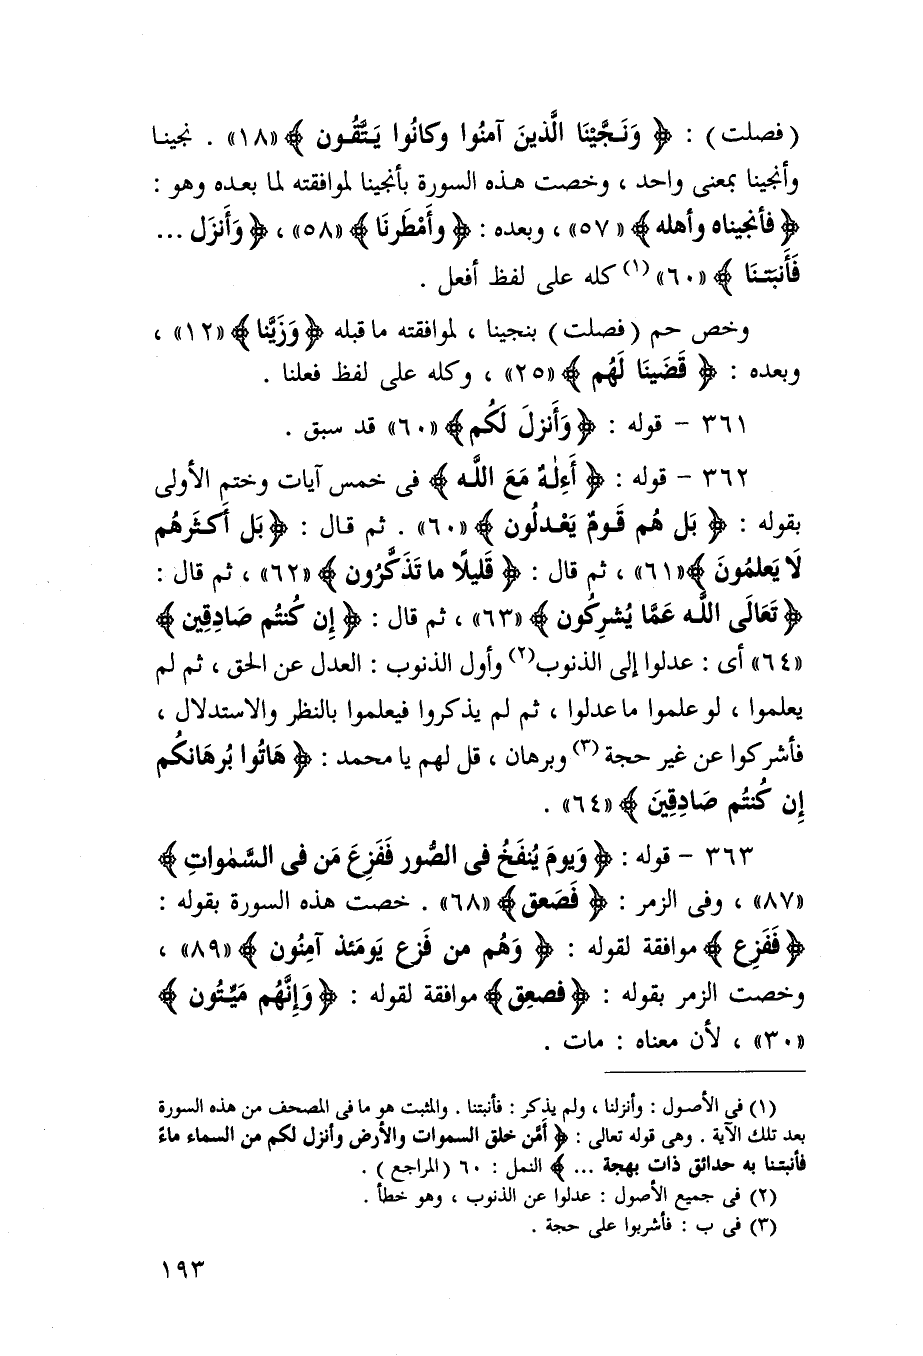 (فصلت) : ﴿ وَنَجَّيْنَا الَّذينَ آمنُوا وكانُوا يَتَّقُون ﴾ «١٨» . نجينا
وأنجينا بمعنى واحد ، وخصت هذه السورة بأنجينا لموافقته لما بعده وهو :
﴿ فأنجيناه وأهله ﴾ «٥٧» ، وبعده : ﴿ وأَمْطَرنَا ﴾ «٥٨» ، ﴿ وَأَنزَل ...
فَأَنبَتنَا ﴾ «٦٠» (١) كله على لفظ أفعل .
وخص حم (فصلت) بنجينا ، لموافقته ما قبله ﴿ وَزَيَّنا ﴾ «١٢» ،
وبعده : ﴿ قَضَينَا لَهُم ﴾ «٢٥» ، وكله على لفظ فعلنا .
٣٦١ - قوله : ﴿ وَأَنزلَ لَكُم ﴾ «٦٠» قد سبق .
٣٦٢ - قوله : ﴿ أَءِلٰهٌ مَعَ اللَّه ﴾ فى خمس آيات وختم الأولى
بقوله : ﴿ بَل هُم قَومٌ يَعْدلُون ﴾ «٦٠» . ثم قال : ﴿ بَل أَكثَرهُم
لَا يَعلمُونَ ﴾ «٦١» ، ثم قال : ﴿ قَليلًا ما تَذَكَّرُون ﴾ «٦٢» ، ثم قال :
﴿ تَعَالَى اللَّه عَمَّا يُشرِكُون ﴾ «٦٣» ، ثم قال : ﴿ إِن كُنتُم صَادِقِين ﴾
«٦٤» أى : عدلوا إلى الذنوب(٢) وأول الذنوب : العدل عن الحق ، ثم لم
يعلموا ، لو علموا ما عدلوا ، ثم لم يذكروا فيعلموا بالنظر والاستدلال ،
فأشركوا عن غير حجة (٣) وبرهان ، قل لهم يا محمد : ﴿ هَاتُوا بُرهَانكُم
إِن كُنتُم صَادِقِينَ ﴾ «٦٤» .
٣٦٣ - قوله : ﴿ وَيومَ يُنفَخُ فى الصُّور فَفَزِعَ مَن فى السَّمٰواتِ ﴾
«٨٧» ، وفى الزمر : ﴿ فَصَعق ﴾ «٦٨» . خصت هذه السورة بقوله :
﴿ فَفَزِع ﴾ موافقة لقوله : ﴿ وَهُم من فَزع يَومَئذ آمِنُون ﴾ «٨٩» ،
وخصت الزمر بقوله : ﴿ فصعِق ﴾ موافقة لقوله : ﴿ وَإِنَّهُم مَيِّتُون ﴾
«٣٠» ، لأن معناه : مات .
(١) فى الأصول : وأنزلنا ، ولم يذكر : فأنبتنا . والمثبت هو ما فى المصحف من هذه السورة
بعد تلك الآية . وهى قوله تعالى : ﴿ أَمَّن خلق السموات والأرض وأنزل لكم من السماء ماءً
فأنبتنا به حدائق ذات بهجة ... ﴾ النمل : ٦٠ (المراجع ) .
(٢) فى جميع الأصول : عدلوا عن الذنوب ، وهو خطأ .
(٣) فى ب : فأشربوا على حجة .
١٩٣